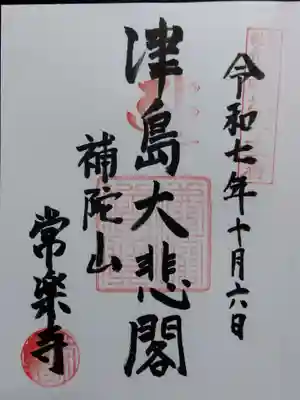 令和七年十月六日
津島大悲閣
補陀山
常楽寺